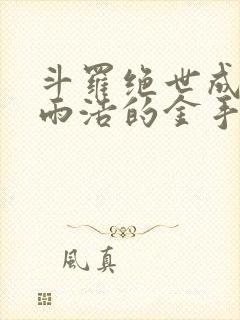 斗羅绝世成
雨浩的金手
風真